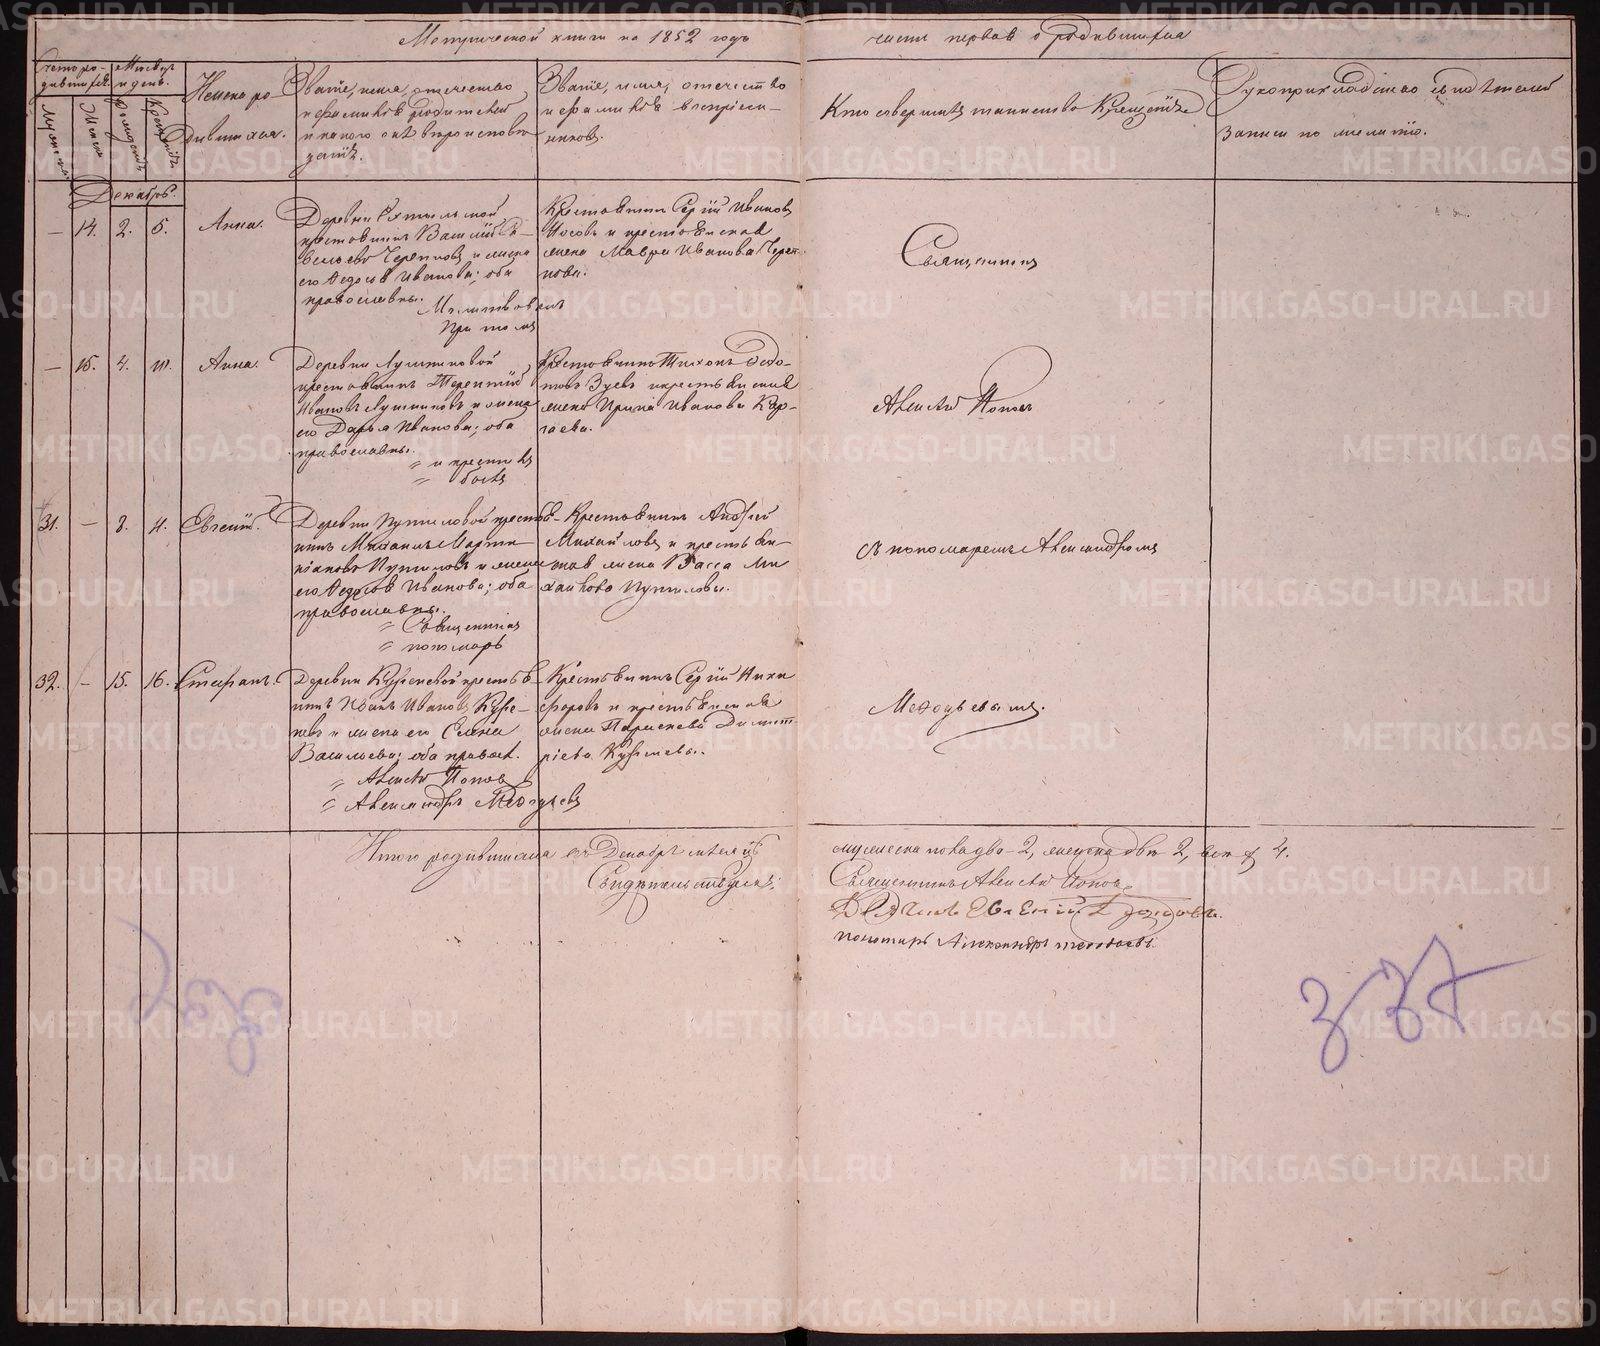 Метрической книги на 1852 годъ
части первая о родившихся
Счетъ ро-
дившихся.
Мѣсяцъ
и день.
Мужеска
Женска
Рожденiя
Крещенiя
Имена ро-
дившихся.
Званiе, имя, отечество,
и фамилiя родителей
и какого они вѣроисповѣ-
данiя.
Званiе, имя, отечество
и фамилiя воспрiем-
никовъ.
Кто совершалъ таинство Крещенiя
Рукоприкладство свидѣтелей
записи по желанiю.
Декабрь.
— 14. 2. 5. Анна.
Деревни
крестьянинъ Василiй Са-
вельевъ Черепновъ и жена
его Федосья Иванова; оба
православны.
Молитвовалъ
При томъ
Крестьянинъ Сергiй Ивановъ
Носовъ и крестьянская
жена Мавра Иванова Череп-
нова.
Священникъ
— 15. 4. 10. Анна.
Деревни Лушниковой
крестьянинъ Терентiй
Ивановъ Лушниковъ и жена
его Дарья Иванова; оба
православны.
" и крестилъ
" былъ
Крестьянинъ Тихонъ Федо-
товъ Зуевъ и крестьянская
жена Ирина Иванова Кар-
гаева.
Алексѣй Поповъ
31. — 3. 4. Евгенiй.
Деревни Путиловой крестья-
нинъ Михаилъ Марти-
нiановъ Путиловъ и жена
его Федосья Иванова; оба
православны.
" Священникъ
" пономарь
Крестьянинъ Андрей
Михайловъ и крестьян-
ская жена Васса Ми
хайлова Путиловы.
съ пономаремъ Александромъ
32. — 15. 16. Стефанъ.
Деревни Кузевской крестья-
нинъ Иванъ Ивановъ Кузе-
невъ и жена его Елена
Васильева; оба правосл.
" Алексѣй Поповъ
" Александръ Меѳодьевъ
Крестьянинъ Сергiй Ники
форовъ и крестьянская
жена Параскева Димит-
рiева
Меѳодьевымъ.
Итого родившихся въ Декабрѣ мѣсяцѣ
мужеска пола два 2, женска двѣ 2, всѣхъ 4.
Свидѣтельствуемъ:
Священникъ Алексѣй Поповъ
Дьячекъ Евгенiй
пономарь Александръ Меѳодьевъ
337
METRIKI.GASO-URAL.RU